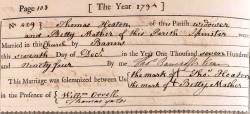 Page 103 [The Year 1794]
No 409 } Thomas Heaton of this Parish widower
and Betty Mather of this Parish Spinster
Married in this Church by Banns
this seventh Day of Decr in the Year One Thousand seven Hundred
and ninety four By me Thos Bancroft
This Marriage was solemnized between Us { the mark of Thos Heaton
the mark of Betty Mather
in the Presence of { Willm Orrell
Thomas yates